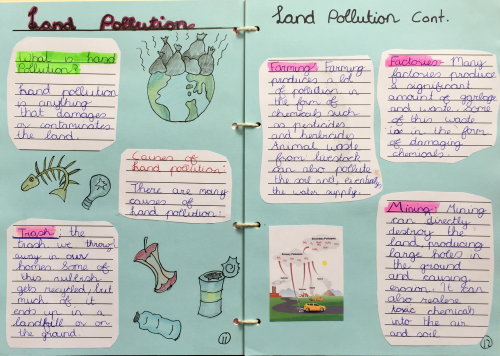 Land Pollution
What is land
Pollution?
Land pollution
is anything
that damages
or contaminates
the land.
Causes of
land pollution
There are many
causes of
land pollution:
Trash: the
trash we throw
away in our
homes. Some of
this rubbish
gets recycled but
much of it
ends up in a
landfill or on
the ground.
11
Land Pollution Cont.
Farming: Farming
produces a lot
of pollution in
the form of
chemicals such
as pesticides
and herbicides
Animal waste
from livestock
can also pollute
the soil and, eventually,
the water supply.
Factories: Many
factories produce
a significant
amount of garbage
and waste, some
of this waste
is in the form
of damaging
chemicals.
Mining: Mining
can directly
destroy the
land, producing
large holes in
the ground
and causing
erosion. It can
also realese
toxic chemicals
into the air
and soil
12